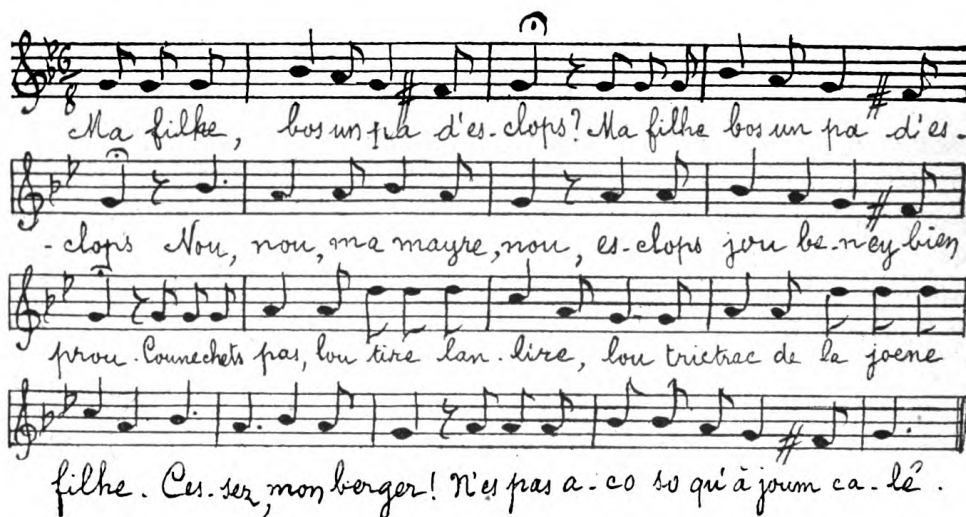 Ma filhe, bos un pa d'es-clops? Ma filhe bos un pa d'es-
-clops Nou, nou, ma mayre, nou, es-clops jou be-ney bien
prou. Counechets pas, lou tire lan-lire, lou trictrac de la joene
filhe. Ces-sez, mon berger! N'es pas a-co so qu'à joum ca-lé.